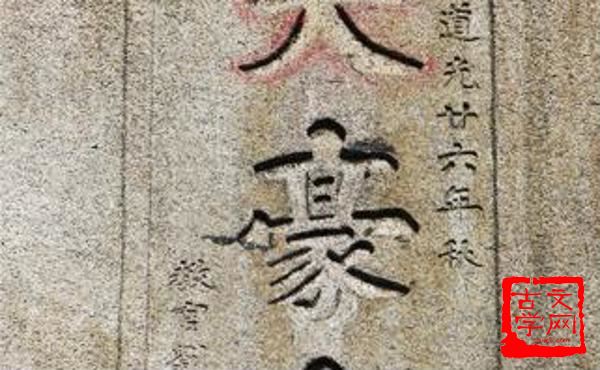 道光廿六年秋
豪
教官
古文
字网